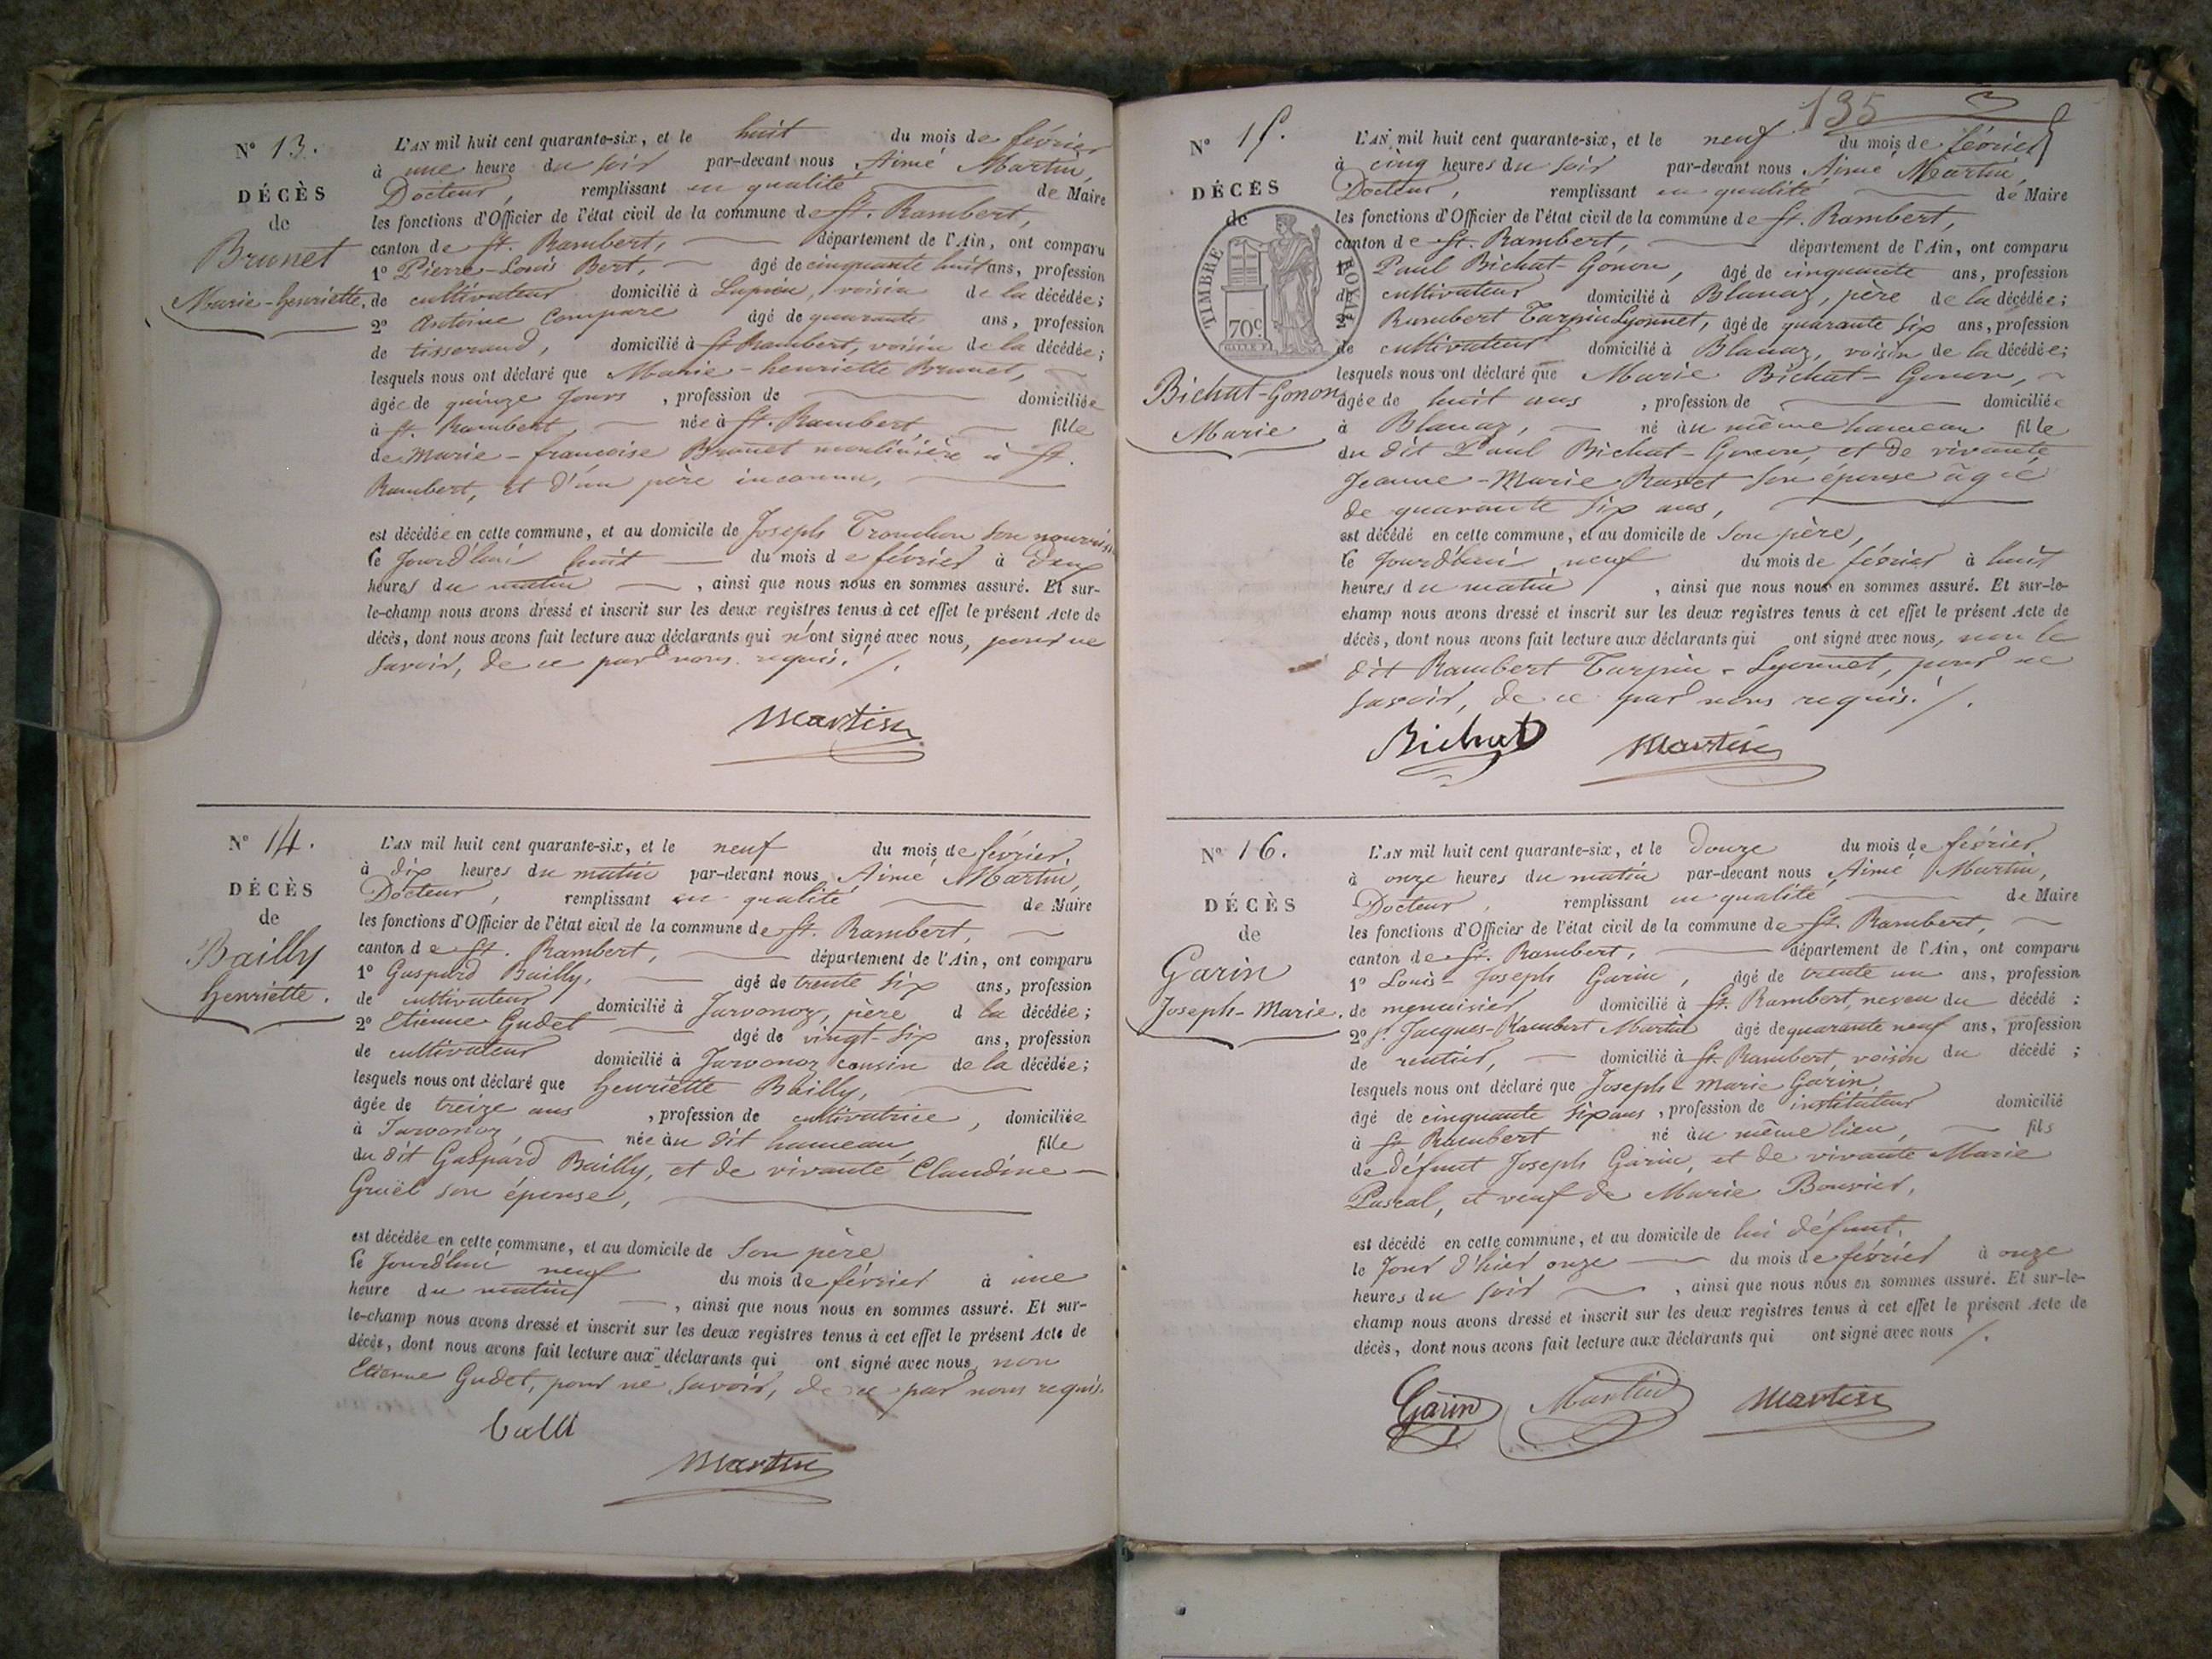 N° 13.
DÉCÈS
de
Brunet
Marie-henriette.
L'AN mil huit cent quarante-six, et le huit du mois de février
à une heure du soir par-devant nous Aimé Martin,
Docteur, remplissant en qualité de Maire
les fonctions d'Officier de l'état civil de la commune de St. Rambert,
canton de St. Rambert, département de l'Ain, ont comparu
1° Pierre-Louis Bert, âgé de cinquante huit ans, profession
de cultivateur domicilié à Lupieu, voisin de la décédée;
2° Antoine Compare âgé de quarante ans, profession
de tisserand, domicilié à St Rambert, voisin de la décédée;
lesquels nous ont déclaré que Marie-henriette Brunet,
âgée de quinze jours, profession de domiciliée
à St. Rambert, née à St. Rambert, fille
de Marie-françoise Brunet moulinière à St.
Rambert, et d'un père inconnu,
est décédée en cette commune, et au domicile de Joseph Tronchon son nourrisi
le jourd'hui huit du mois de février à deux
heures du matin, ainsi que nous nous en sommes assuré. Et sur-
le-champ nous avons dressé et inscrit sur les deux registres tenus à cet effet le présent Acte de
décès, dont nous avons fait lecture aux déclarants qui n'ont signé avec nous, pour ne
savoir, de ce par nous requis./.
Martin
N° 14.
DÉCÈS
de
Bailly
henriette.
L'AN mil huit cent quarante-six, et le neuf du mois de février,
à dix heures du matin par-devant nous Aimé Martin,
Docteur, remplissant en qualité de Maire
les fonctions d'Officier de l'état civil de la commune de St. Rambert,
canton de St. Rambert, département de l'Ain, ont comparu
1° Gaspard Bailly, âgé de trente six ans, profession
de cultivateur domicilié à Jarvonoz, père d la décédée;
2° Etienne Gudet âgé de vingt-six ans, profession
de cultivateur domicilié à Jarvonoz cousin de la décédée;
lesquels nous ont déclaré que henriette Bailly,
âgée de treize ans, profession de cultivatrice, domiciliée
à Jarvonoz, née au dit hameau, fille
du dit Gaspard Bailly, et de vivante Claudine
Gruël son épouse,
est décédée en cette commune, et au domicile de son père
le jourd'hui neuf du mois de février à une
heure du matin, ainsi que nous nous en sommes assuré. Et sur-
le-champ nous avons dressé et inscrit sur les deux registres tenus à cet effet le présent Acte de
décès, dont nous avons fait lecture aux déclarants qui ont signé avec nous, non
Etienne Gudet, pour ne savoir, de ce par nous requis.
Martin
135
N° 15.
DÉCÈS
de
TIMBRE ROYAL
70c
Bichat-Gonon
Marie
L'AN mil huit cent quarante-six, et le neuf du mois de février
à cinq heures du soir par-devant nous Aimé Martin,
Docteur, remplissant en qualité de Maire
les fonctions d'Officier de l'état civil de la commune de St. Rambert,
canton de St. Rambert, département de l'Ain, ont comparu
1° Paul Bichat-Gonon, âgé de cinquante ans, profession
de cultivateur domicilié à Blanaz, père de la décédée;
2° Rambert Turpin Lyonnet, âgé de quarante six ans, profession
de cultivateur domicilié à Blanaz, voisin de la décédée;
lesquels nous ont déclaré que Marie Bichat-Gonon,
âgée de huit ans, profession de domiciliée
à Blanaz, né au même hameau fille
du dit Paul Bichat-Gonon, et de vivante
Jeanne-Marie Ravet son épouse âgée
de quarante six ans,
est décédé en cette commune, et au domicile de son père,
le jourd'hui neuf du mois de février à huit
heures du matin, ainsi que nous nous en sommes assuré. Et sur-le-
champ nous avons dressé et inscrit sur les deux registres tenus à cet effet le présent Acte de
décès, dont nous avons fait lecture aux déclarants qui ont signé avec nous, non le
dit Rambert Turpin-Lyonnet, pour ne
savoir, de ce par nous requis./.
Bichat Martin
N° 16.
DÉCÈS
de
Garin
Joseph-Marie.
L'AN mil huit cent quarante-six, et le douze du mois de février
à onze heures du matin par-devant nous Aimé Martin,
Docteur, remplissant en qualité de Maire
les fonctions d'Officier de l'état civil de la commune de St. Rambert,
canton de St. Rambert, département de l'Ain, ont comparu
1° Louis-Joseph Garin, âgé de trente un ans, profession
de menuisier domicilié à St. Rambert, neveu du décédé;
2° Sr. Jacques-Rambert Martin âgé de quarante neuf ans, profession
de rentier, domicilié à St. Rambert, voisin du décédé;
lesquels nous ont déclaré que Joseph-Marie Garin,
âgé de cinquante six ans, profession de instituteur domicilié
à St Rambert né au même lieu, fils
de défunt Joseph Garin, et de vivante Marie
Pascal, et veuf de Marie Bouvier,
est décédé en cette commune, et au domicile de lui défunt,
le jour d'hier onze du mois de février à onze
heures du soir, ainsi que nous nous en sommes assuré. Et sur-le-
champ nous avons dressé et inscrit sur les deux registres tenus à cet effet le présent Acte de
décès, dont nous avons fait lecture aux déclarants qui ont signé avec nous/.
Garin Martin Martin